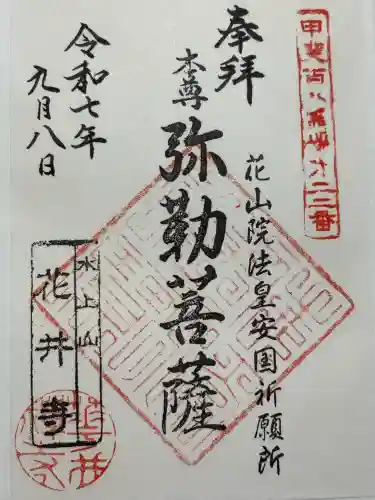 奉拝
本尊
弥勒菩薩
花山院法皇安国祈願所
令和七年
九月八日
水上山
花井寺